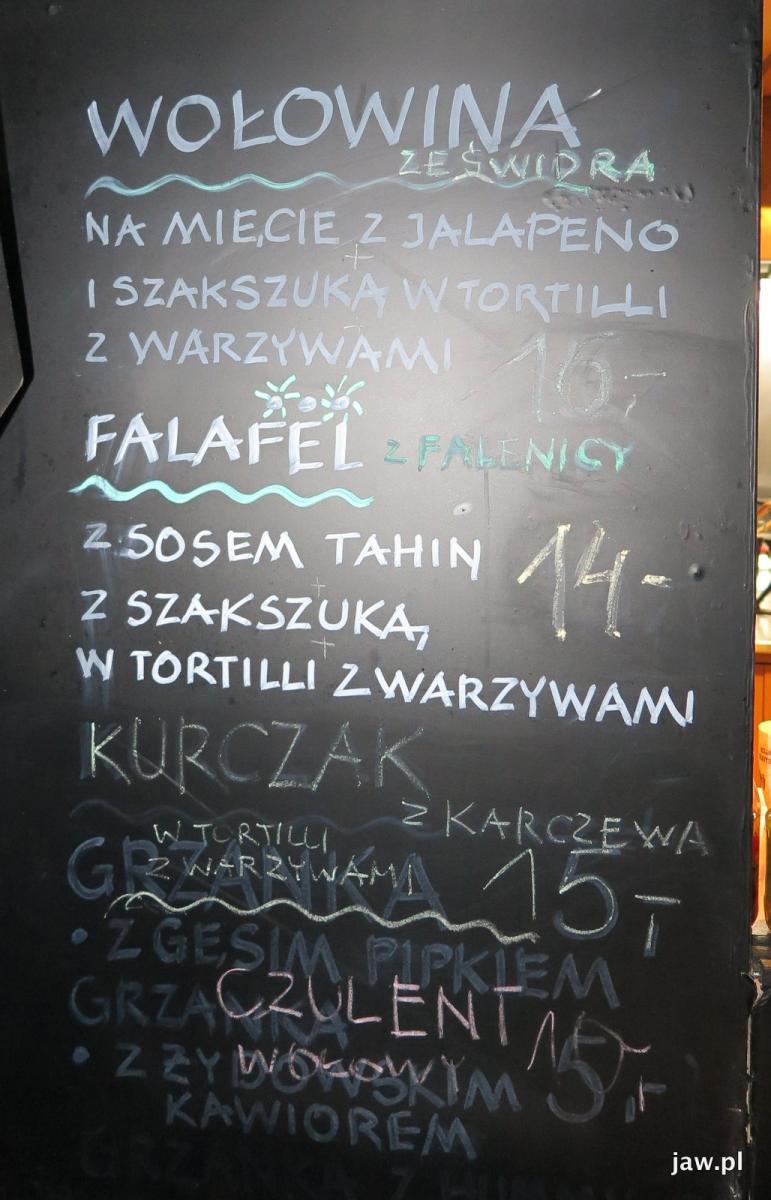 WOŁOWINA
ZE ŚWIDRA
NA MIĘCIE Z JALAPENO
I SZAKSZUKĄ W TORTILLI
Z WARZYWAMI 16,-
FALAFEL Z FALENICY
Z SOSEM TAHIN 14-
Z SZAKSZUKĄ,
W TORTILLI Z WARZYWAMI
KURCZAK
Z KARCZEWA
W TORTILLI
Z WARZYWAMI 15,-
GRZANKA
• Z GĘSIM PIPKIEM
GRZANKA
CZULENT
WOŁOWY 15,-
• Z ŻYDOWSKIM
KAWIOREM
GRZANKA Z
jaw.pl